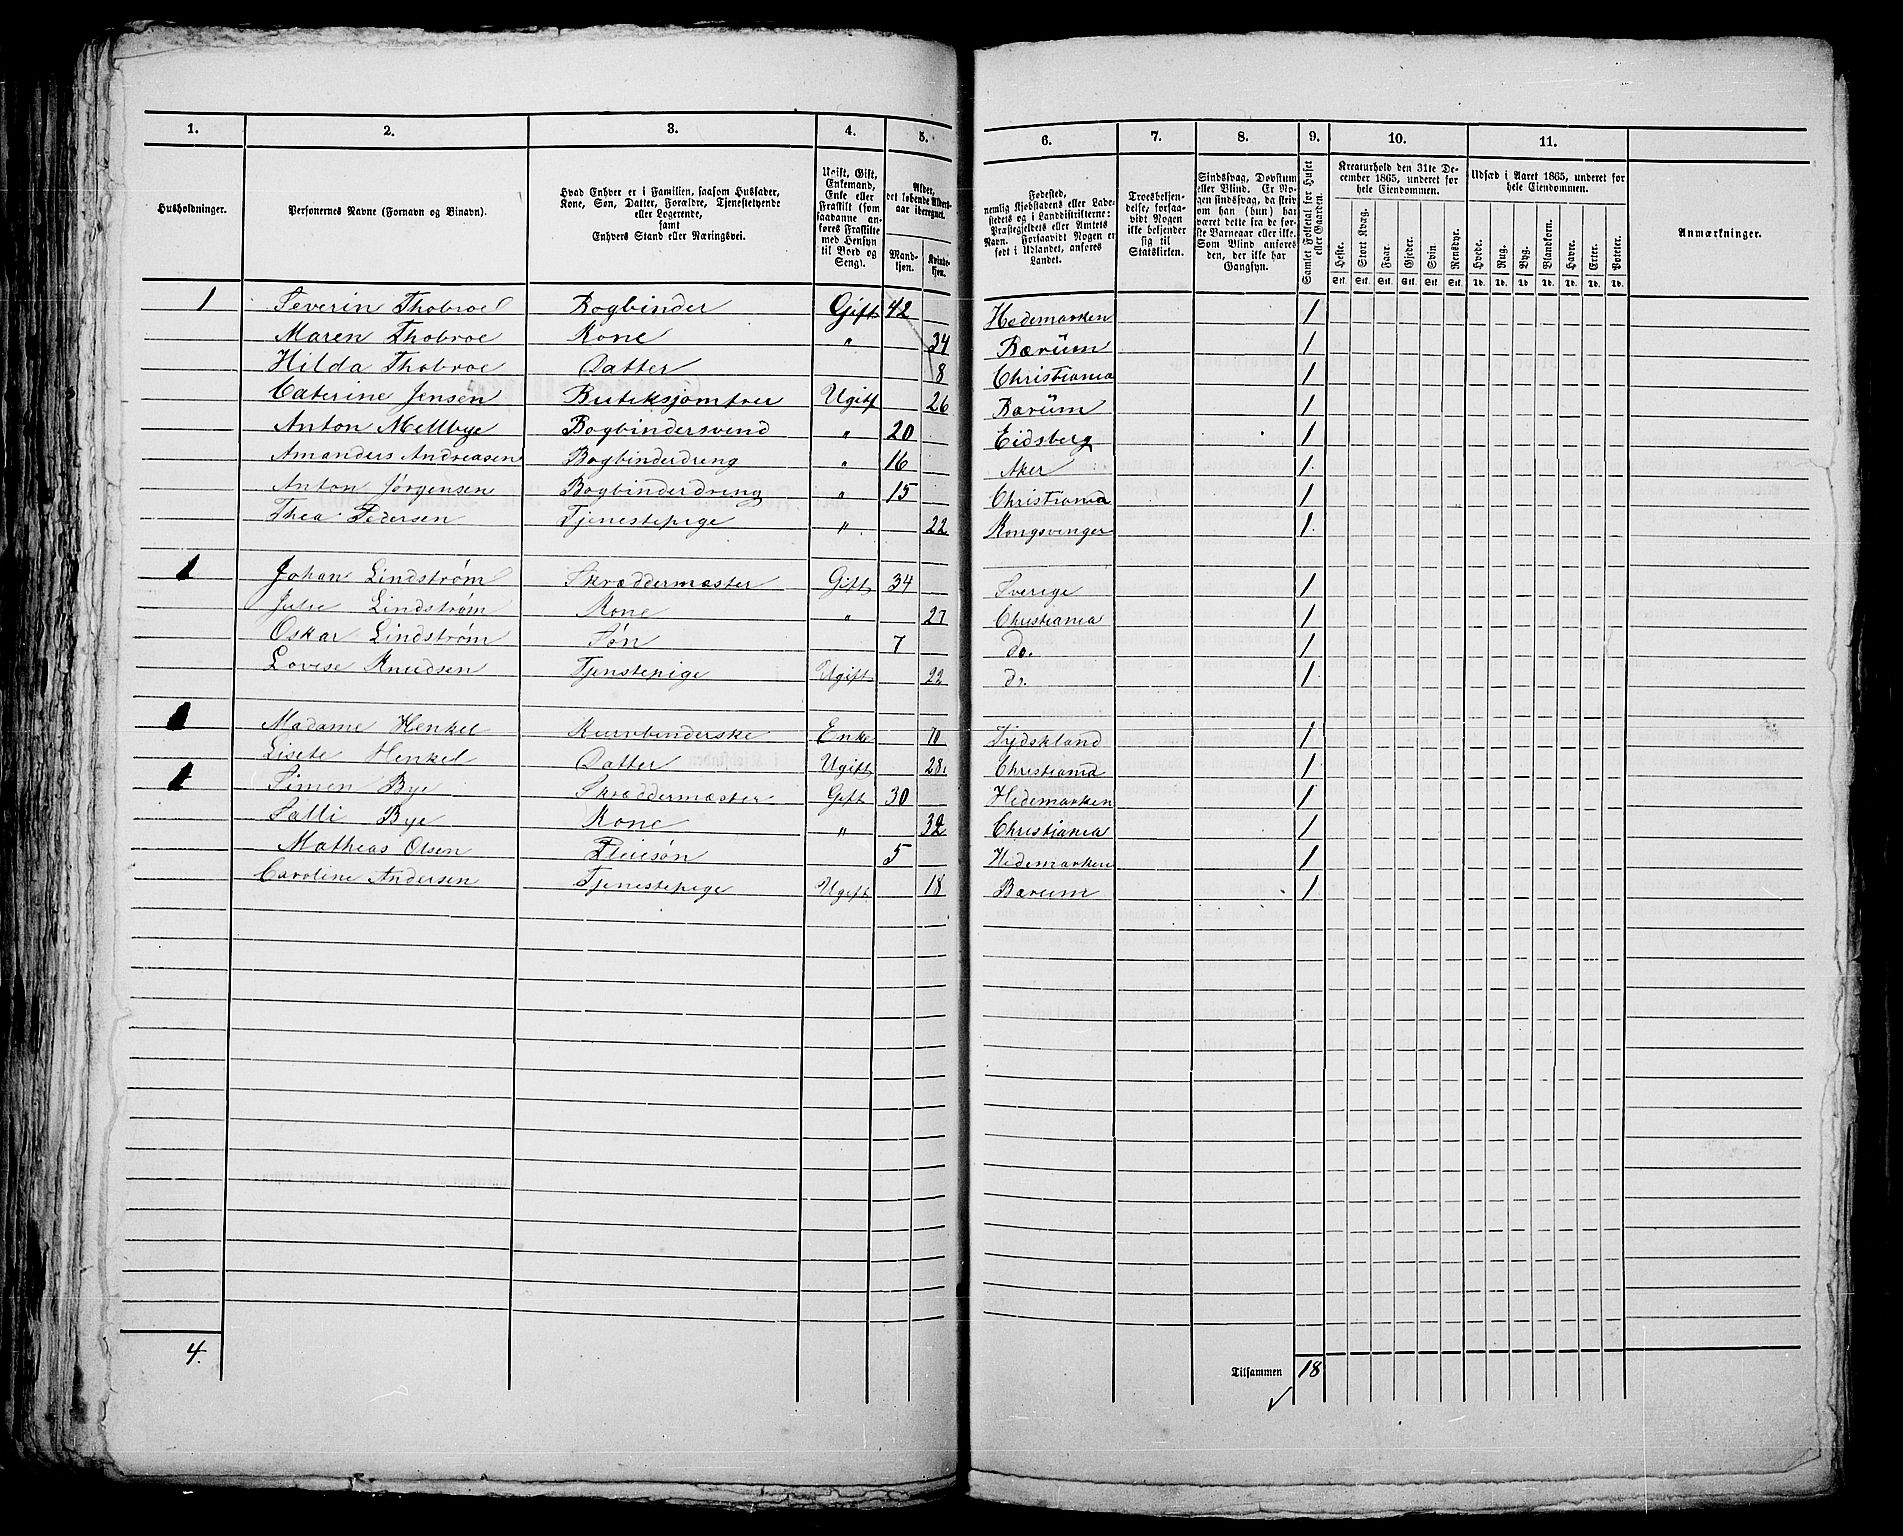 1. 2. 3. 4. 5. 6. 7. 8. 9. 10. 11.
Husholdninger.
Personernes Navne (Fornavn og Binavn).
Hvad Enhver er i Familien, saasom Husfader, Kone, Søn, Datter, Forældre, Tjenestetyende eller Logerende, samt Enhvers Stand eller Næringsvei.
Ugift, Gift, Enkemand, Enke eller Fraskilt (som saadanne anføres Fraskilte med Hensyn til Bord og Seng).
Alder, det løbende Alders-aar iberegnet.
Mandkjøn. Kvindekjøn.
Fødested, nemlig Kjøbstadens eller Ladestedets og i Landdistrikterne: Præstegjeldets eller Amtets Navn. Forsaavidt Nogen er født i Udlandet, anføres Landet.
Troesbekjendelse, forsaavidt Nogen ikke bekjender sig til Statskirken.
Sindssvag, Døvstum eller Blind. Er Nogen sindssvag, da skrives om han (hun) har været dette fra de første Barneaar eller ikke. Som Blind anføres den, der ikke har Gangsyn.
Samlet Folketal for Huset eller Gaarden.
Kreaturhold den 31te December 1865, underet for hele Eiendommen.
Heste. Stort Kvæg. Faar. Gjeder. Svin. Rensdyr.
Stk. Stk. Stk. Stk. Stk. Stk.
Udsæd i Aaret 1865, underet for hele Eiendommen.
Hvede. Rug. Byg. Blandkorn. Havre. Erter. Poteter.
Td. Td. Td. Td. Td. Td. Td.
Anmærkninger.
1 Severin Thobroe Bogbinder Gift 42 Hedemarken 1
Maren Thobroe Kone " 34 Bærum 1
Hilda Thobroe Datter 8 Christiania 1
Caterine Jensen Butiksjomfrer Ugift 26 Bærum 1
Anton Mellbye Bogbindersvend " 20 Eidsberg 1
Amanders Andreasen Bogbinderdreng " 16 Aker 1.
Anton Jørgensen Bogbinderdreng " 15 Christiania 1
Thea Pedersen Tjenestepige " 22 Kongsvinger 1.
1 Johan Lindstrøm Skræddermester Gift 34 Sverige 1
Julie Lindstrøm Kone " 27 Christiania 1
Oskar Lindstrøm Søn 7 do. 1
Lovise Knudsen Tjenstepige Ugift 22 do. 1
1 Madame Henkel Kurvbinderske Enke 70 Tydskland 1
Lisete Henkel Datter Ugift 28. Christiania 1
1 Simen Bye Skræddermester Gift 30 Hedemarken 1
Salli Bye Kone " 32 Christiania 1
Mathias Olsen Pleiesøn 5 Hedemarken 1
Caroline Andersen Tjenestepige Ugift 18 Bærum 1
4.
Tilsammen 18